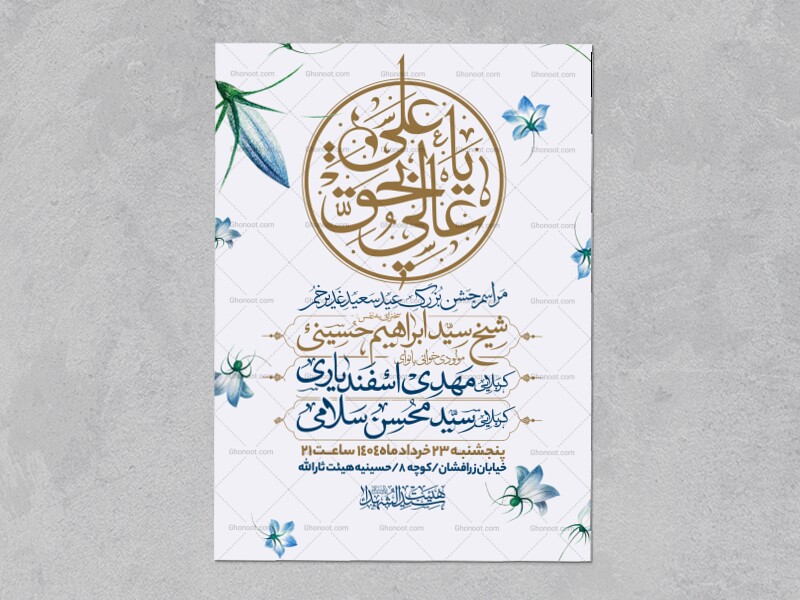 یا علی
عالی بحق
مراسم جشن بزرگ عید سعید غدیر خم
سخنرانی به نفس
شیخ سید ابراهیم حسینی
مولودی خوانی با نوای
کربلایی مهدی اسفندیاری
کربلایی سید محسن سلامی
پنجشنبه ۲۳ خرداد ماه ۱۴۰۴ ساعت ۲۱
خیابان زرافشان/کوچه ۸/حسینیه هیئت ثارالله
هیئت سیدالشهدا
Ghonoot.com